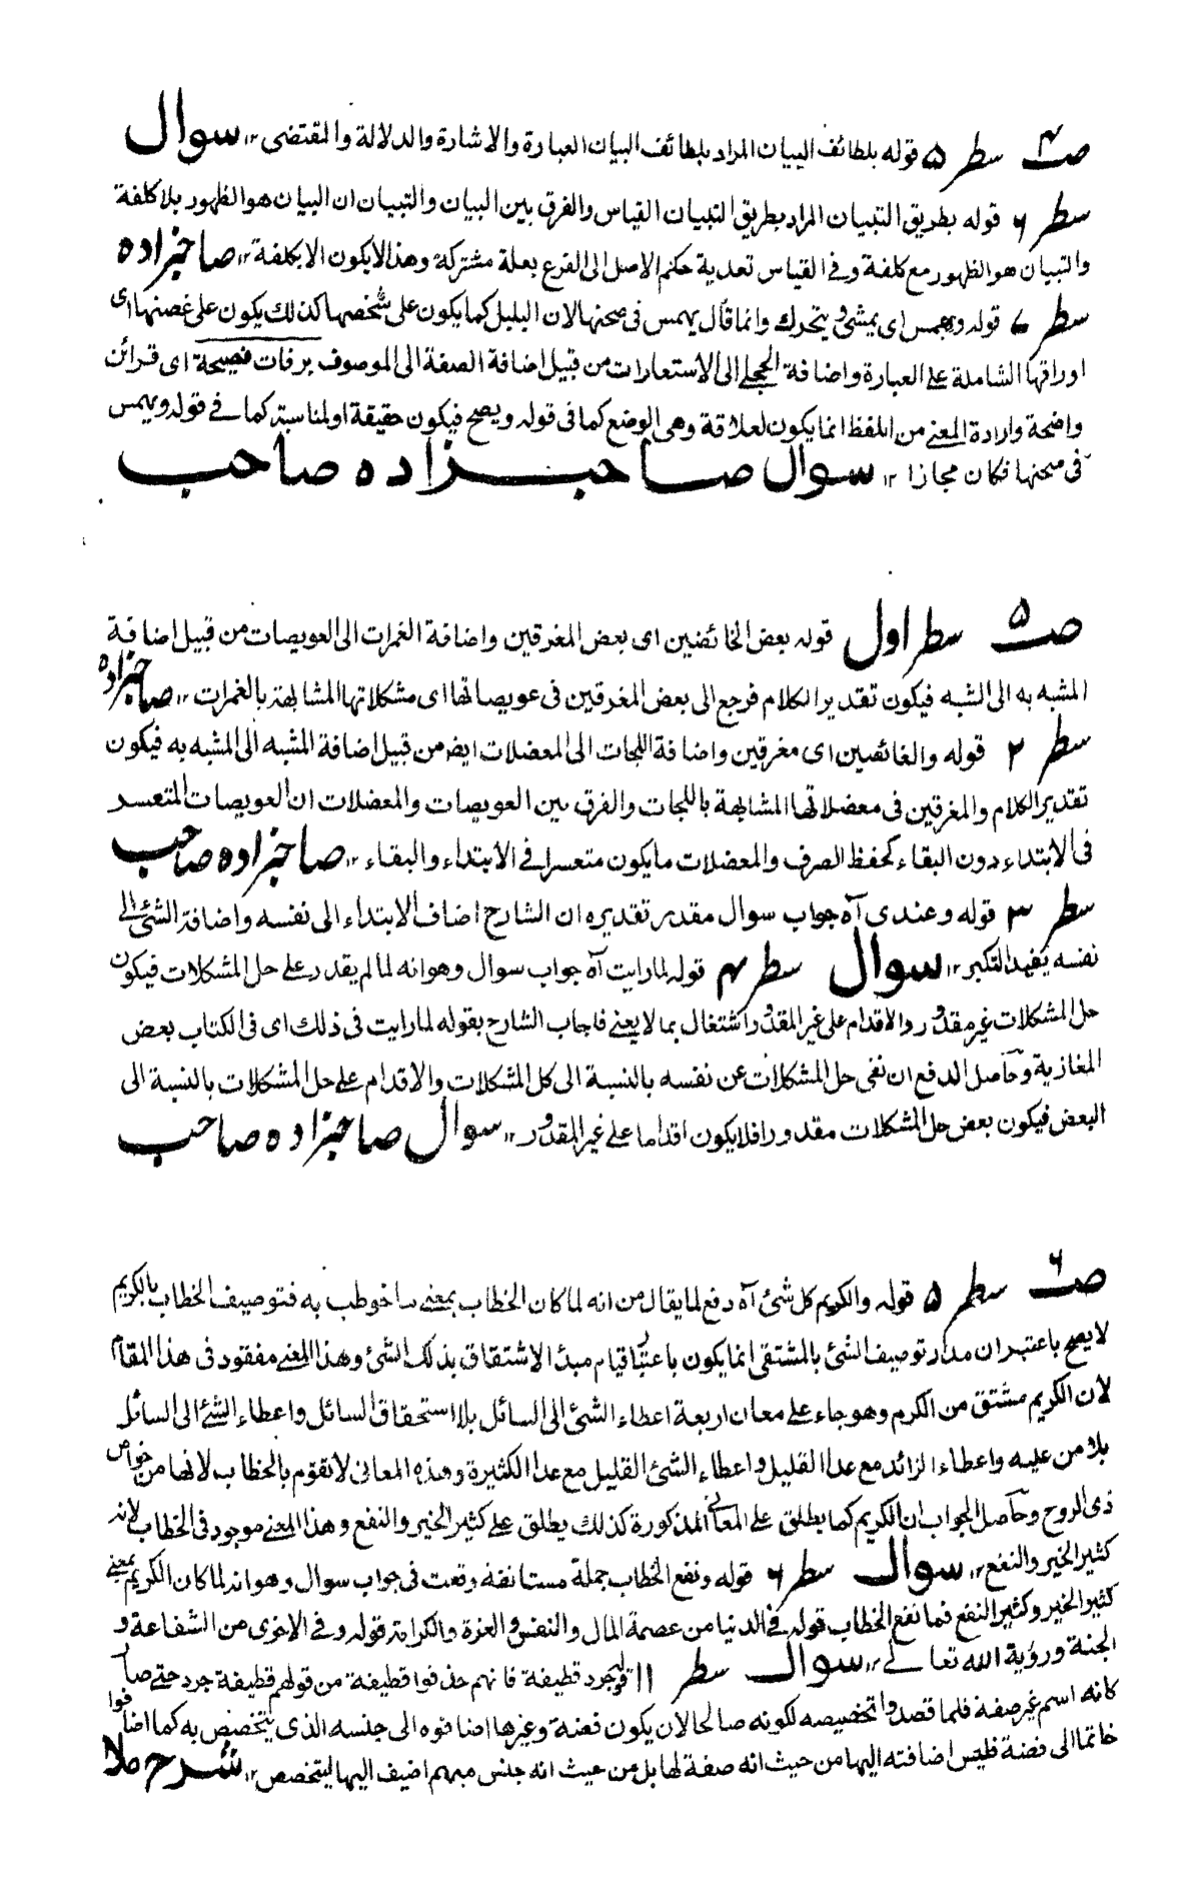 صـ۴ سطر ۵ قوله بلطائف البيان المراد بلطائف البيان العبارة والاشارة والدلالة والمقتضى ۱۲ سوال
سطر ۶ قوله بطريق التبيان المراد بطريق التبيان القياس والفرق بين البيان والتبيان ان البيان هو الظهور بلا كلفة
والتبيان هو الظهور مع كلفة وفى القياس تعدية حكم الاصل الى الفرع بعلة مشتركة وهذا لا يكون الا بكلفة ۱۲ صاحبزاده
سطر ۷ قوله ويهمس اى يمشى ويتحرك وانما قال يهمس فى صحنها لان البليل كما يكون على شخصها كذلك يكون على غصنها اى
اوراقها الشاملة على العبارة واضافة الحجلے الى الاستعارات من قبيل اضافة الصفة الى الموصوف برفات فصيحة اى قرائن
واضحة وارادة المعنے من اللفظ انما يكون لعلاقة وهى الوضع كما فى قوله ويصح فيكون حقيقة او لمناسبة كما فے قوله ويهمس
فى صحنها فكان مجازا ۱۲ سوال صاحبزاده صاحب
صـ۵ سطر اول قوله بعض الخائضين اى بعض المغرقين واضافة الغمرات الى العويصات من قبيل اضافة
المشبه به الى الشبه فيكون تقدير الكلام فرجع الى بعض المغرقين فى عويصاتها اى مشكلاتها المشابهة بالغمرات ۱۲ صاحبزاده
سطر ۲ قوله والغائصين اى مغرقين واضافة اللجات الى المعضلات ايضا من قبيل اضافة المشبه الى المشبه به فيكون
تقدير الكلام والمغرقين فى معضلاتها المشابهة باللجات والفرق بين العويصات والمعضلات ان العويصات المتعسر
فى الابتداء دون البقاء كحفظ الصرف والمعضلات ما يكون متعسرا فے الابتداء والبقاء ۱۲ صاحبزاده صاحب
سطر ۳ قوله وعندى آه جواب سوال مقدر تقديره ان الشارح اضاف الابتداء الى نفسه واضافة الشئ الے
نفسه يفيد التكبر ۱۲ سوال سطر ۴ قوله لما رايت آه جواب سوال وهو انه لما لم يقدر علے حل المشكلات فيكون
حل المشكلات غير مقدور والاقدام على غير المقدور اشتغال بما لا يعنے فاجاب الشارح بقوله لما رايت فى ذلك اى فى الكتاب بعض
المغازية وحاصل الدفع ان نفى حل المشكلات عن نفسه بالنسبة الى كل المشكلات والاقدام علے حل المشكلات بالنسبة الى
البعض فيكون بعض حل المشكلات مقدورا فلا يكون اقداما علے غير المقدور ۱۲ سوال صاحبزاده صاحب
صـ۶ سطر ۵ قوله والكريم كل شئ آه دفع لما يقال من انه لما كان الخطاب بمعنے ما خوطب به فتوصيف الخطاب بالكريم
لا يصح باعتبر ان مدار توصيف الشئ بالمشتقى انما يكون باعتبار قيام مبدأ الاشتقاق بذلك الشئ وهذا المعنے مفقود فى هذا المقام
لان الكريم مشتق من الكرم وهو جاء علے معان اربعة اعطاء الشئ الى السائل بلا استحقاق السائل واعطاء الشئ الى السائل
بلا من عليه واعطاء الزائد مع عدا القليل واعطاء الشئ القليل مع عدا الكثيرة وهذه المعانى لا تقوم بالخطاب لانها من خواص
ذى الروح وحاصل الجواب ان الكريم كما يطلق علے المعانى المذكورة كذلك يطلق علے كثير الخير والنفع وهذا المعنے موجود فى الخطاب لانه
كثير الخير والنفع ۱۲ سوال سطر ۶ قوله ونفع الخطاب جملة مستانفة وقعت فى جواب سوال وهو انه لما كان الكريم بمعنے
كثير الخير وكثير النفع فما نفع الخطاب قوله فے الدنيا من عصمة المال والنفس والعزة والكرامة قوله وفے الاخرى من الشفاعة و
الجنة ورؤية الله تعالے ۱۲ سوال سطر ۱۱ قوله جرد قطيفة فانهم حذفوا قطيفة من قولهم قطيفة جرد حتے صار
كانه اسم غير صفة فلما قصدوا تخصيصه لكونه صالحا لان يكون فضة وغيرها اضافوه الى جنسه الذى يتخصص به كما اضافوا
خاتما الى فضة فليس اضافته اليها من حيث انه صفة لها بل من حيث انه جنس مبهم اضيف اليها ليتخصص ۱۲ شرح ملا